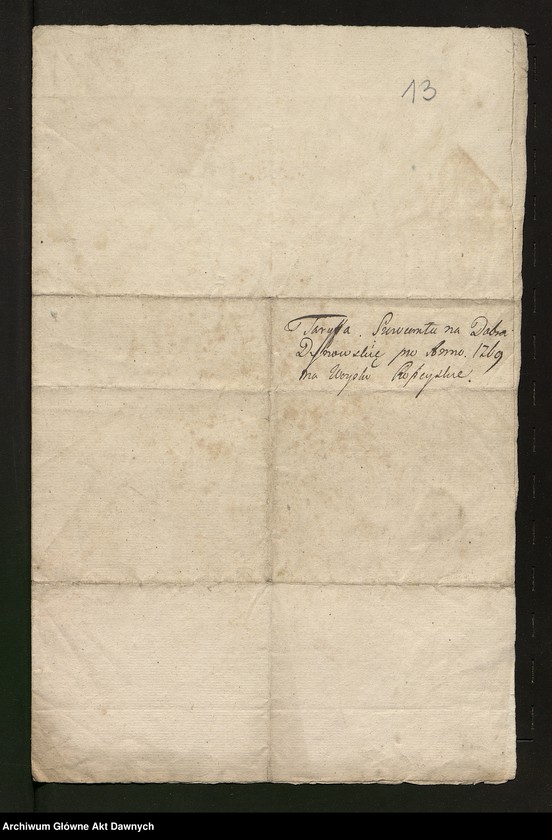 13
Taryffa. Prowentu na Dobra
Dąbrowskie po Anno. 1769
na Woysko Rossyiskie.
Archiwum Główne Akt Dawnych